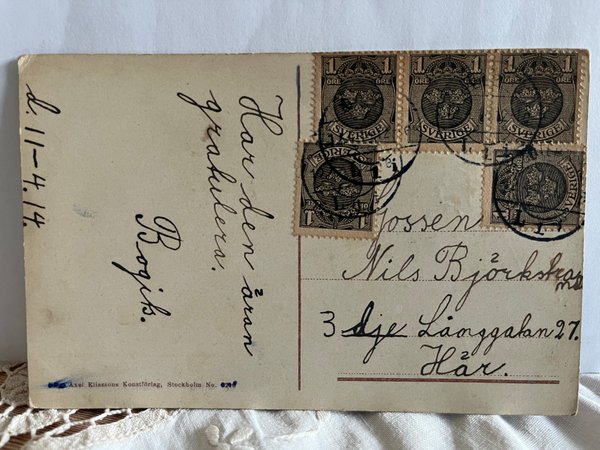 d. 11-4. 14.
Har den äran
gratulera.
Bogik.
1 ÖRE 1 ÖRE
SVERIGE
1 ÖRE 1 ÖRE
SVERIGE
1 ÖRE 1 ÖRE
SVERIGE
SVERIGE
1
SVERIGE
1
Gossen
Nils Björkstrand
3 dje Långgatan 27.
Här.
Axel Eliassons Konstförlag, Stockholm No.